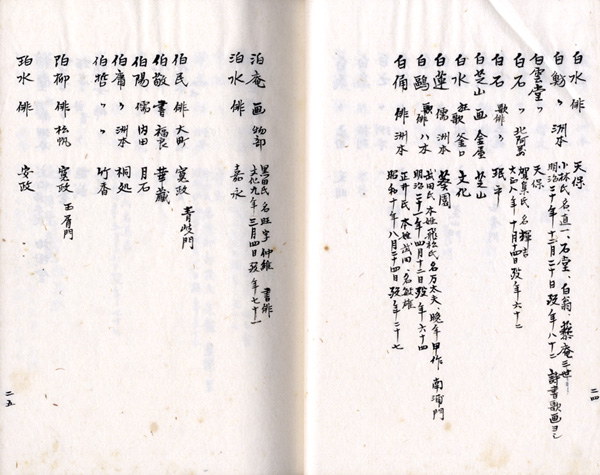 白水 俳 天保
白魴 〃 洲本 小林氏名直一、石堂、白翁、蔡庵三世
明治二十年十二月二十日歿年八十三 詩書歌画ヨシ
白雲堂 〃 天保
白石 〃 北阿万 賀集氏、名、輝吉
大正八年十月十四日歿年六十二
白石 歌俳 〃 珉平
白芝山 画 金屋 芝山
白水 狂歌 釜口 文化
白蓮 儒 洲本 葵園
白鷗 歌俳 〃 八木 武田氏本姓飛松氏名万太夫晩年甲作 南浦門
明治二十一年四月十三日歿年六十四
白俑 俳 洲本 正井氏本姓武田、名敏雄
昭和十年八月二十四日歿年二十七
二四
泊庵 画 物部 黒田氏、名旺字仲雄 書俳
文化九年三月四日歿年七十一
泊水 俳 嘉永
伯民 俳 大町 寛政 青岐門
伯敬 書 福良 華蔵
伯陽 儒 内田 月石
伯庸 〃 洲本 桐処
伯哲 〃 〃 竹香
珀柳 俳 松帆 寛政 玉屑門
珀水 俳 安政
二五